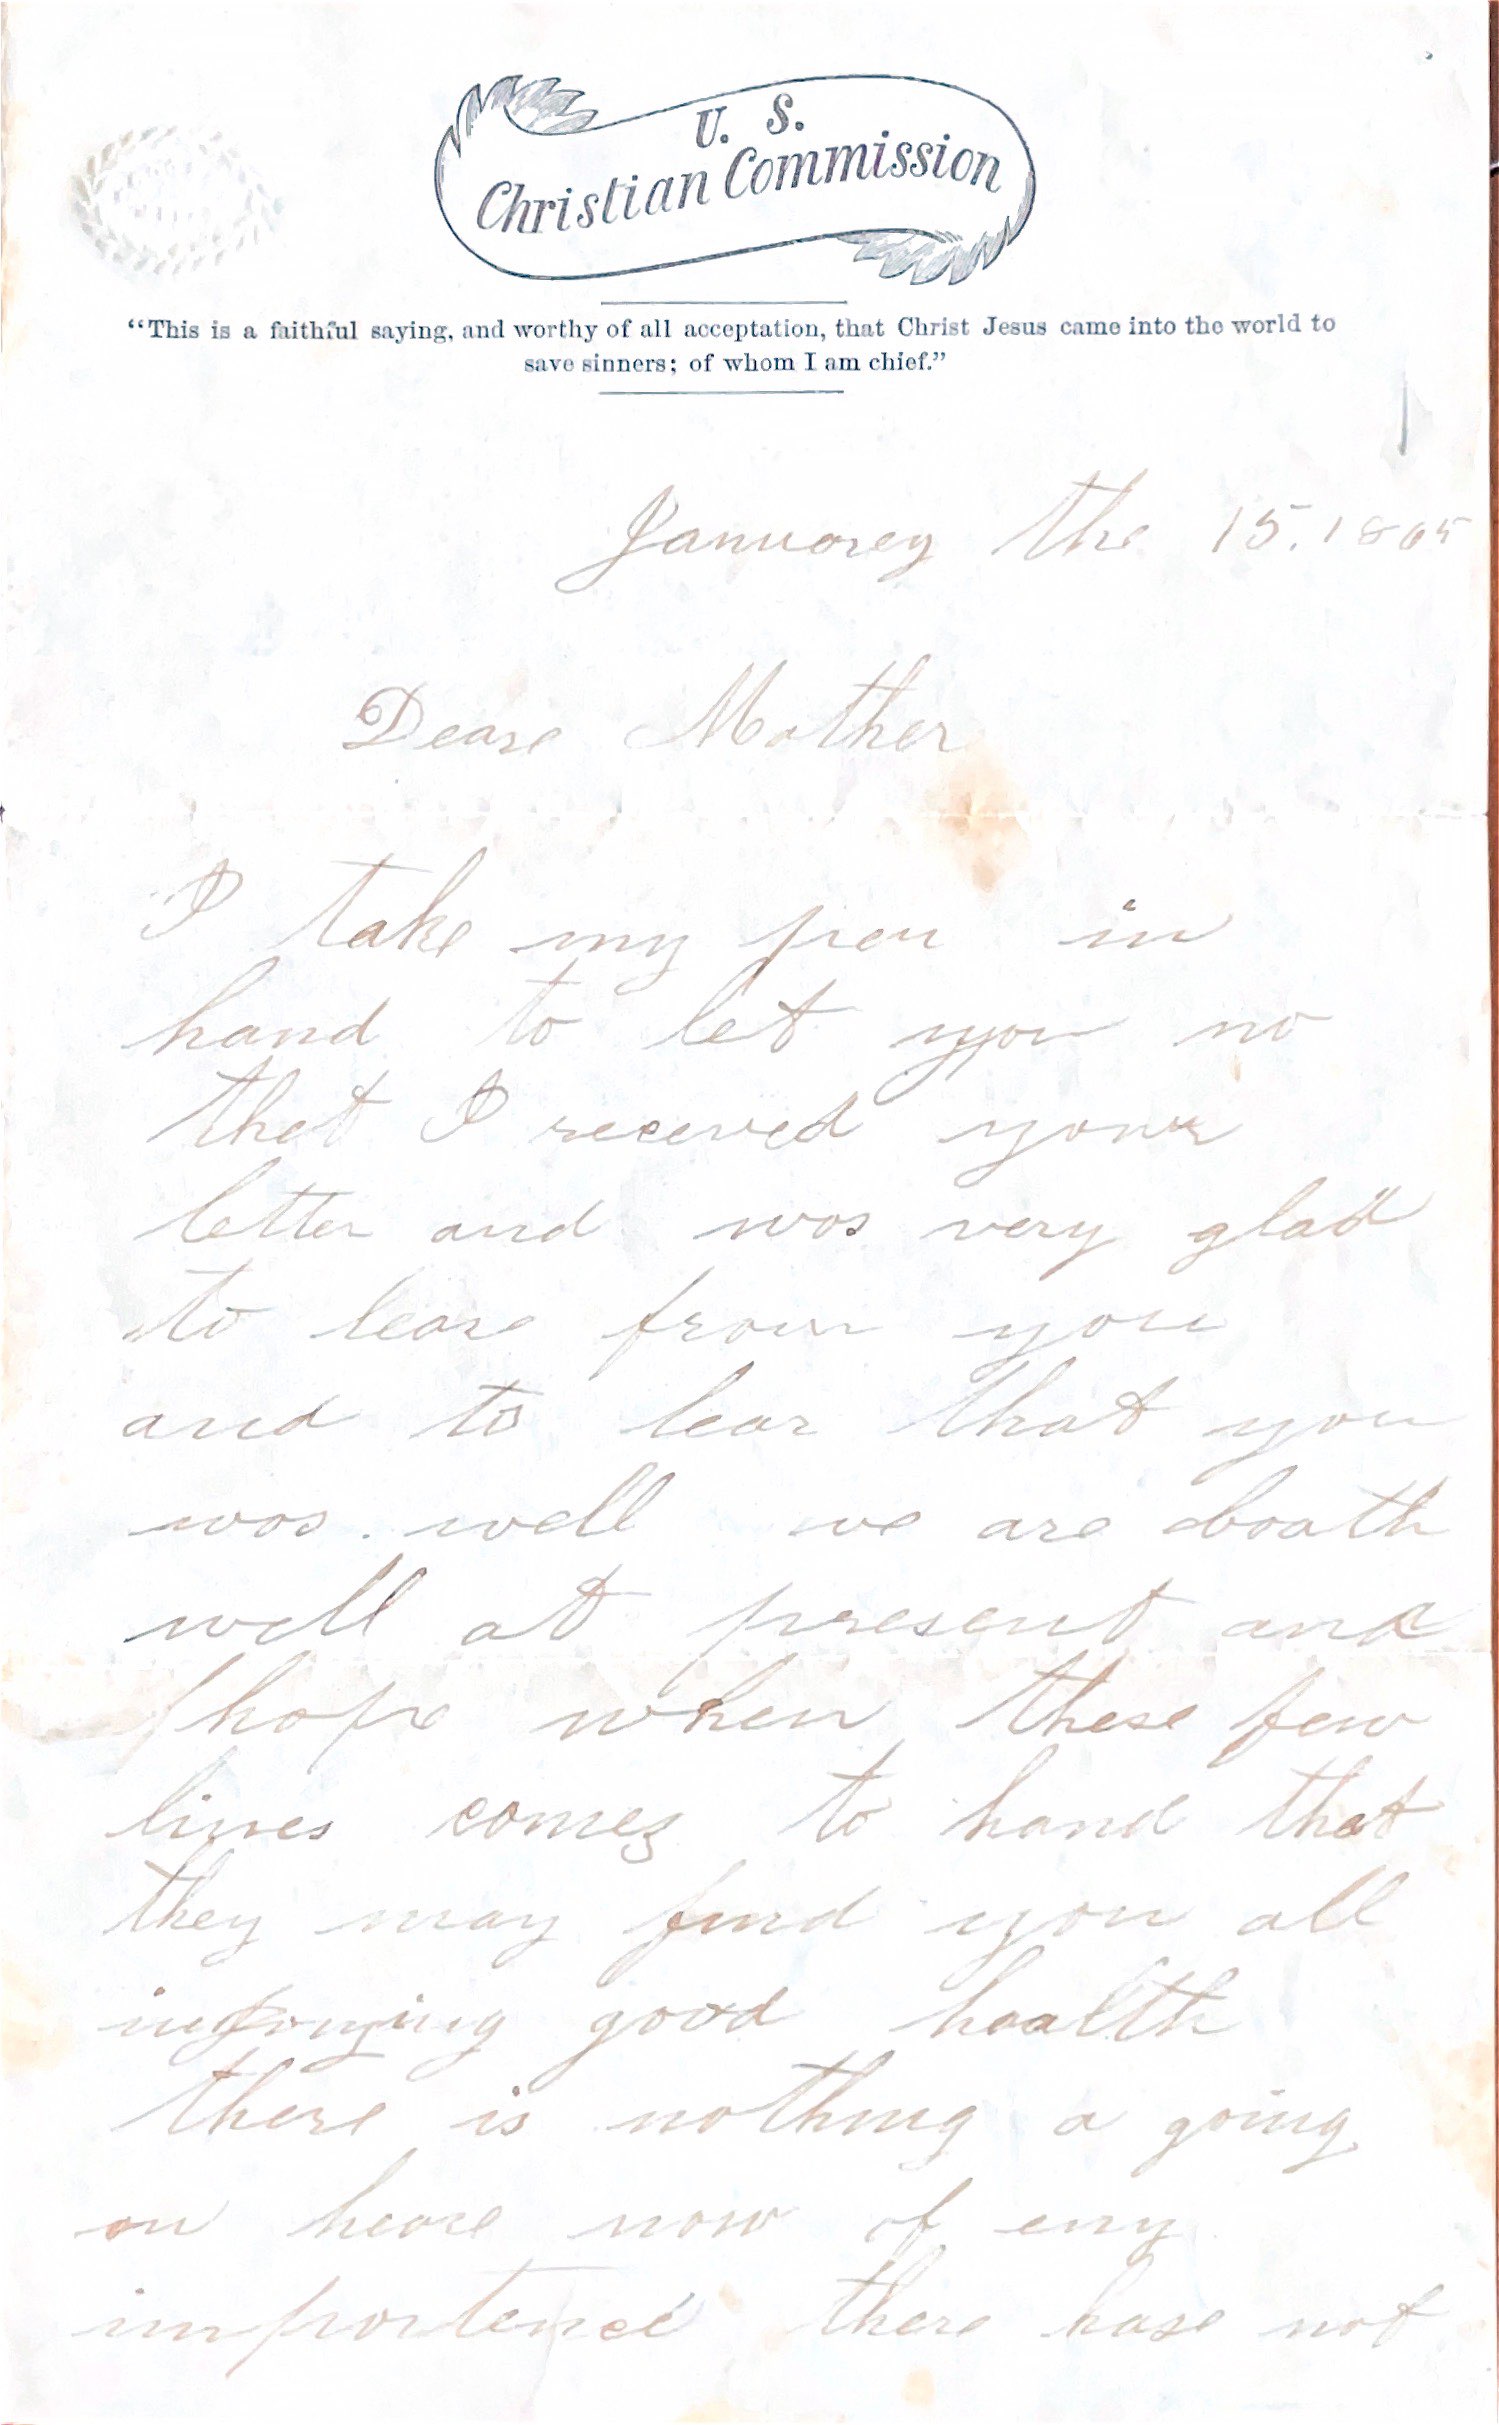 U. S.
Christian Commission
“This is a faithful saying, and worthy of all acceptation, that Christ Jesus came into the world to
save sinners; of whom I am chief.”
Januarey the 15. 1865
Deare Mother
I take my pen in
hand to let you no
that I receved your
letter and was very glad
to leare from you
and to lear that you
was well we are boath
well at present and
hope when these few
lines comes to hand that
they may find you all
good health
there is nothing a going
on heare now of eny
importence there hase not